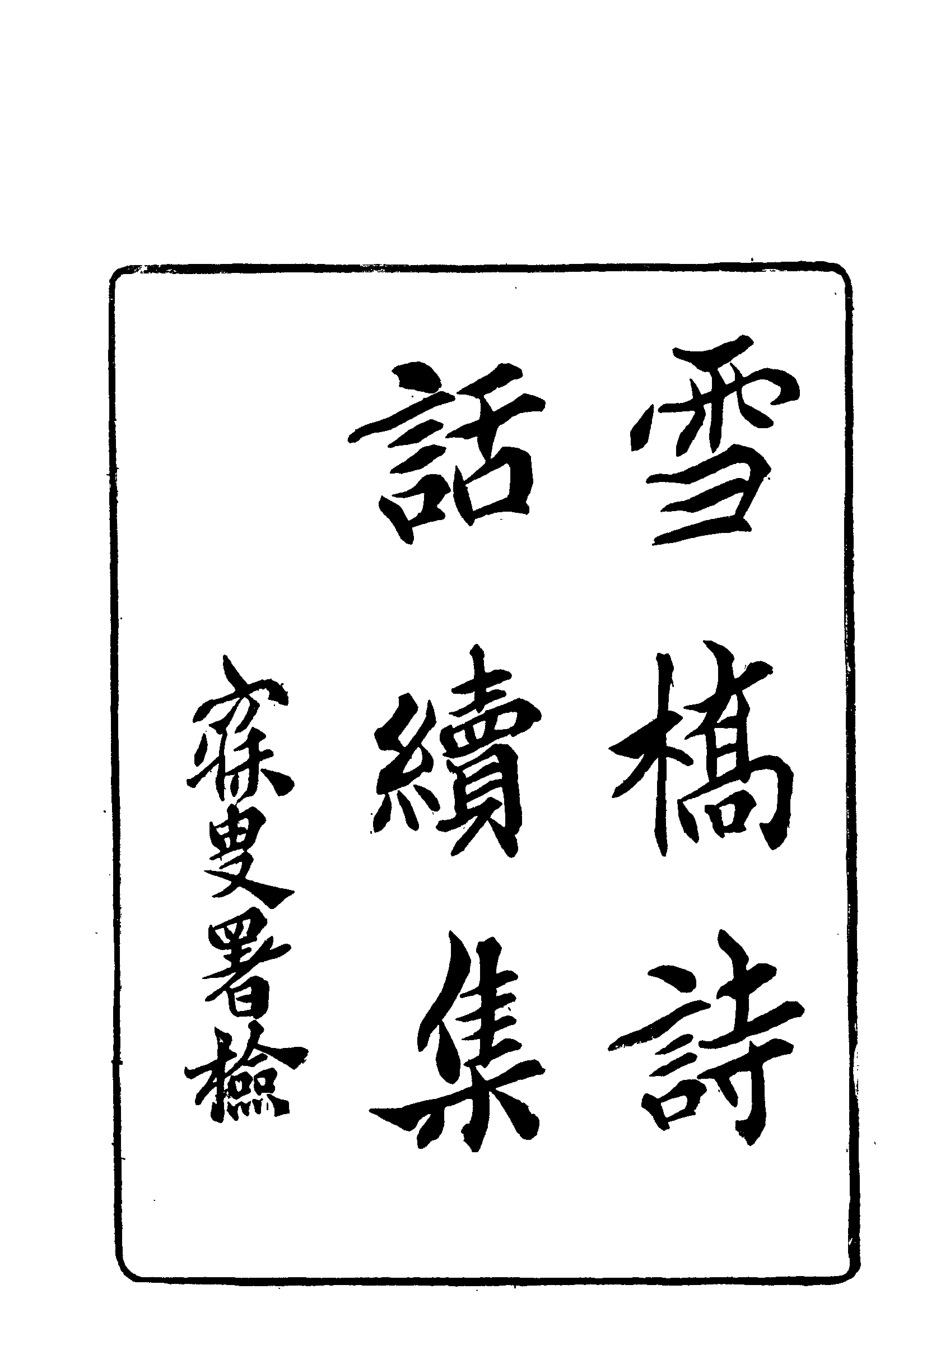 雪橋詩
話續集
寐叟署檢